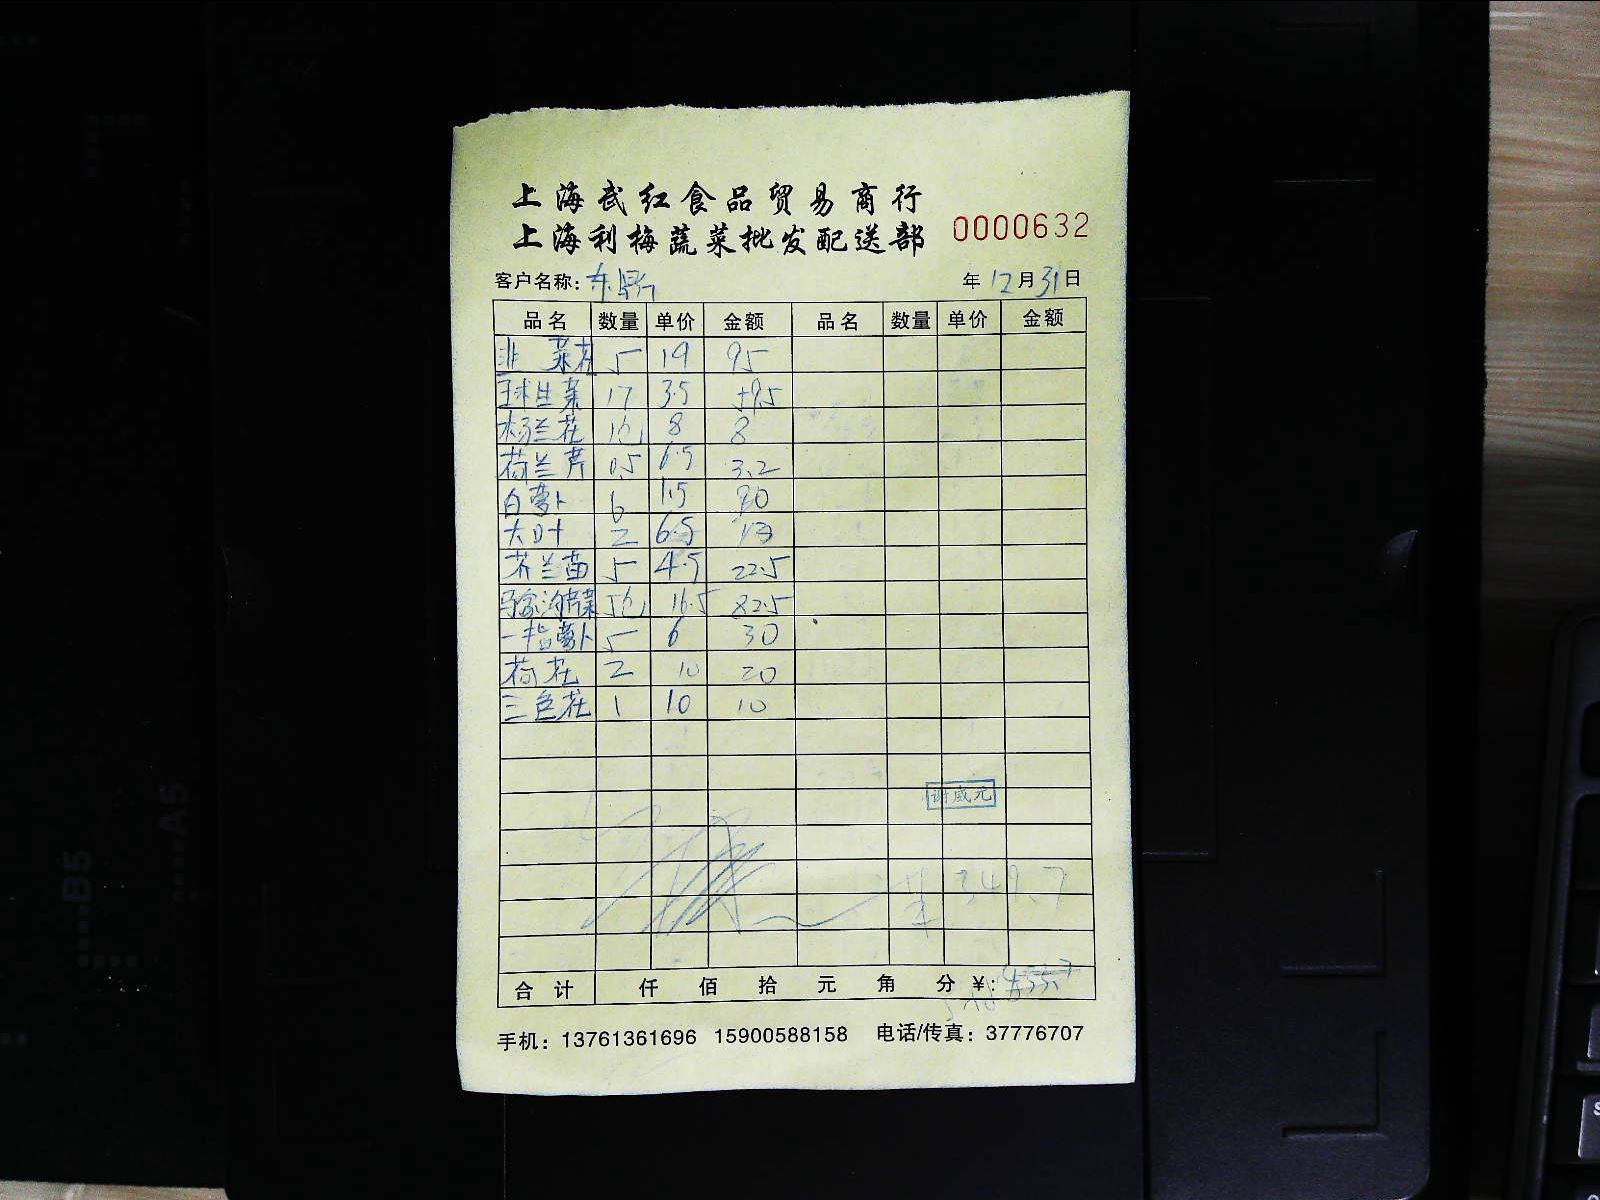 上海武红食品贸易商行
上海利梅蔬菜批发配送部
0000632
客户名称: 东鼎 年 12 月 31 日
品名 数量 单价 金额 品名 数量 单价 金额
韭菜花 5 19 95
球生菜 17 3.5 59.5
杨兰花 1包 8 8
荷兰芹 0.5 6.5 3.2
白萝卜 6 1.5
大叶 2 6.5 13
芥兰苗 5 4.5 22.5
马家沟芹菜 5包 16.5 82.5
一指萝卜 5 6 30
荷花 2 10 20
三色花 1 10 10
谢威元
349.7
合计 仟 佰 拾 元 角 分 ¥:
手机: 13761361696 15900588158 电话/传真: 37776707
B5
A5